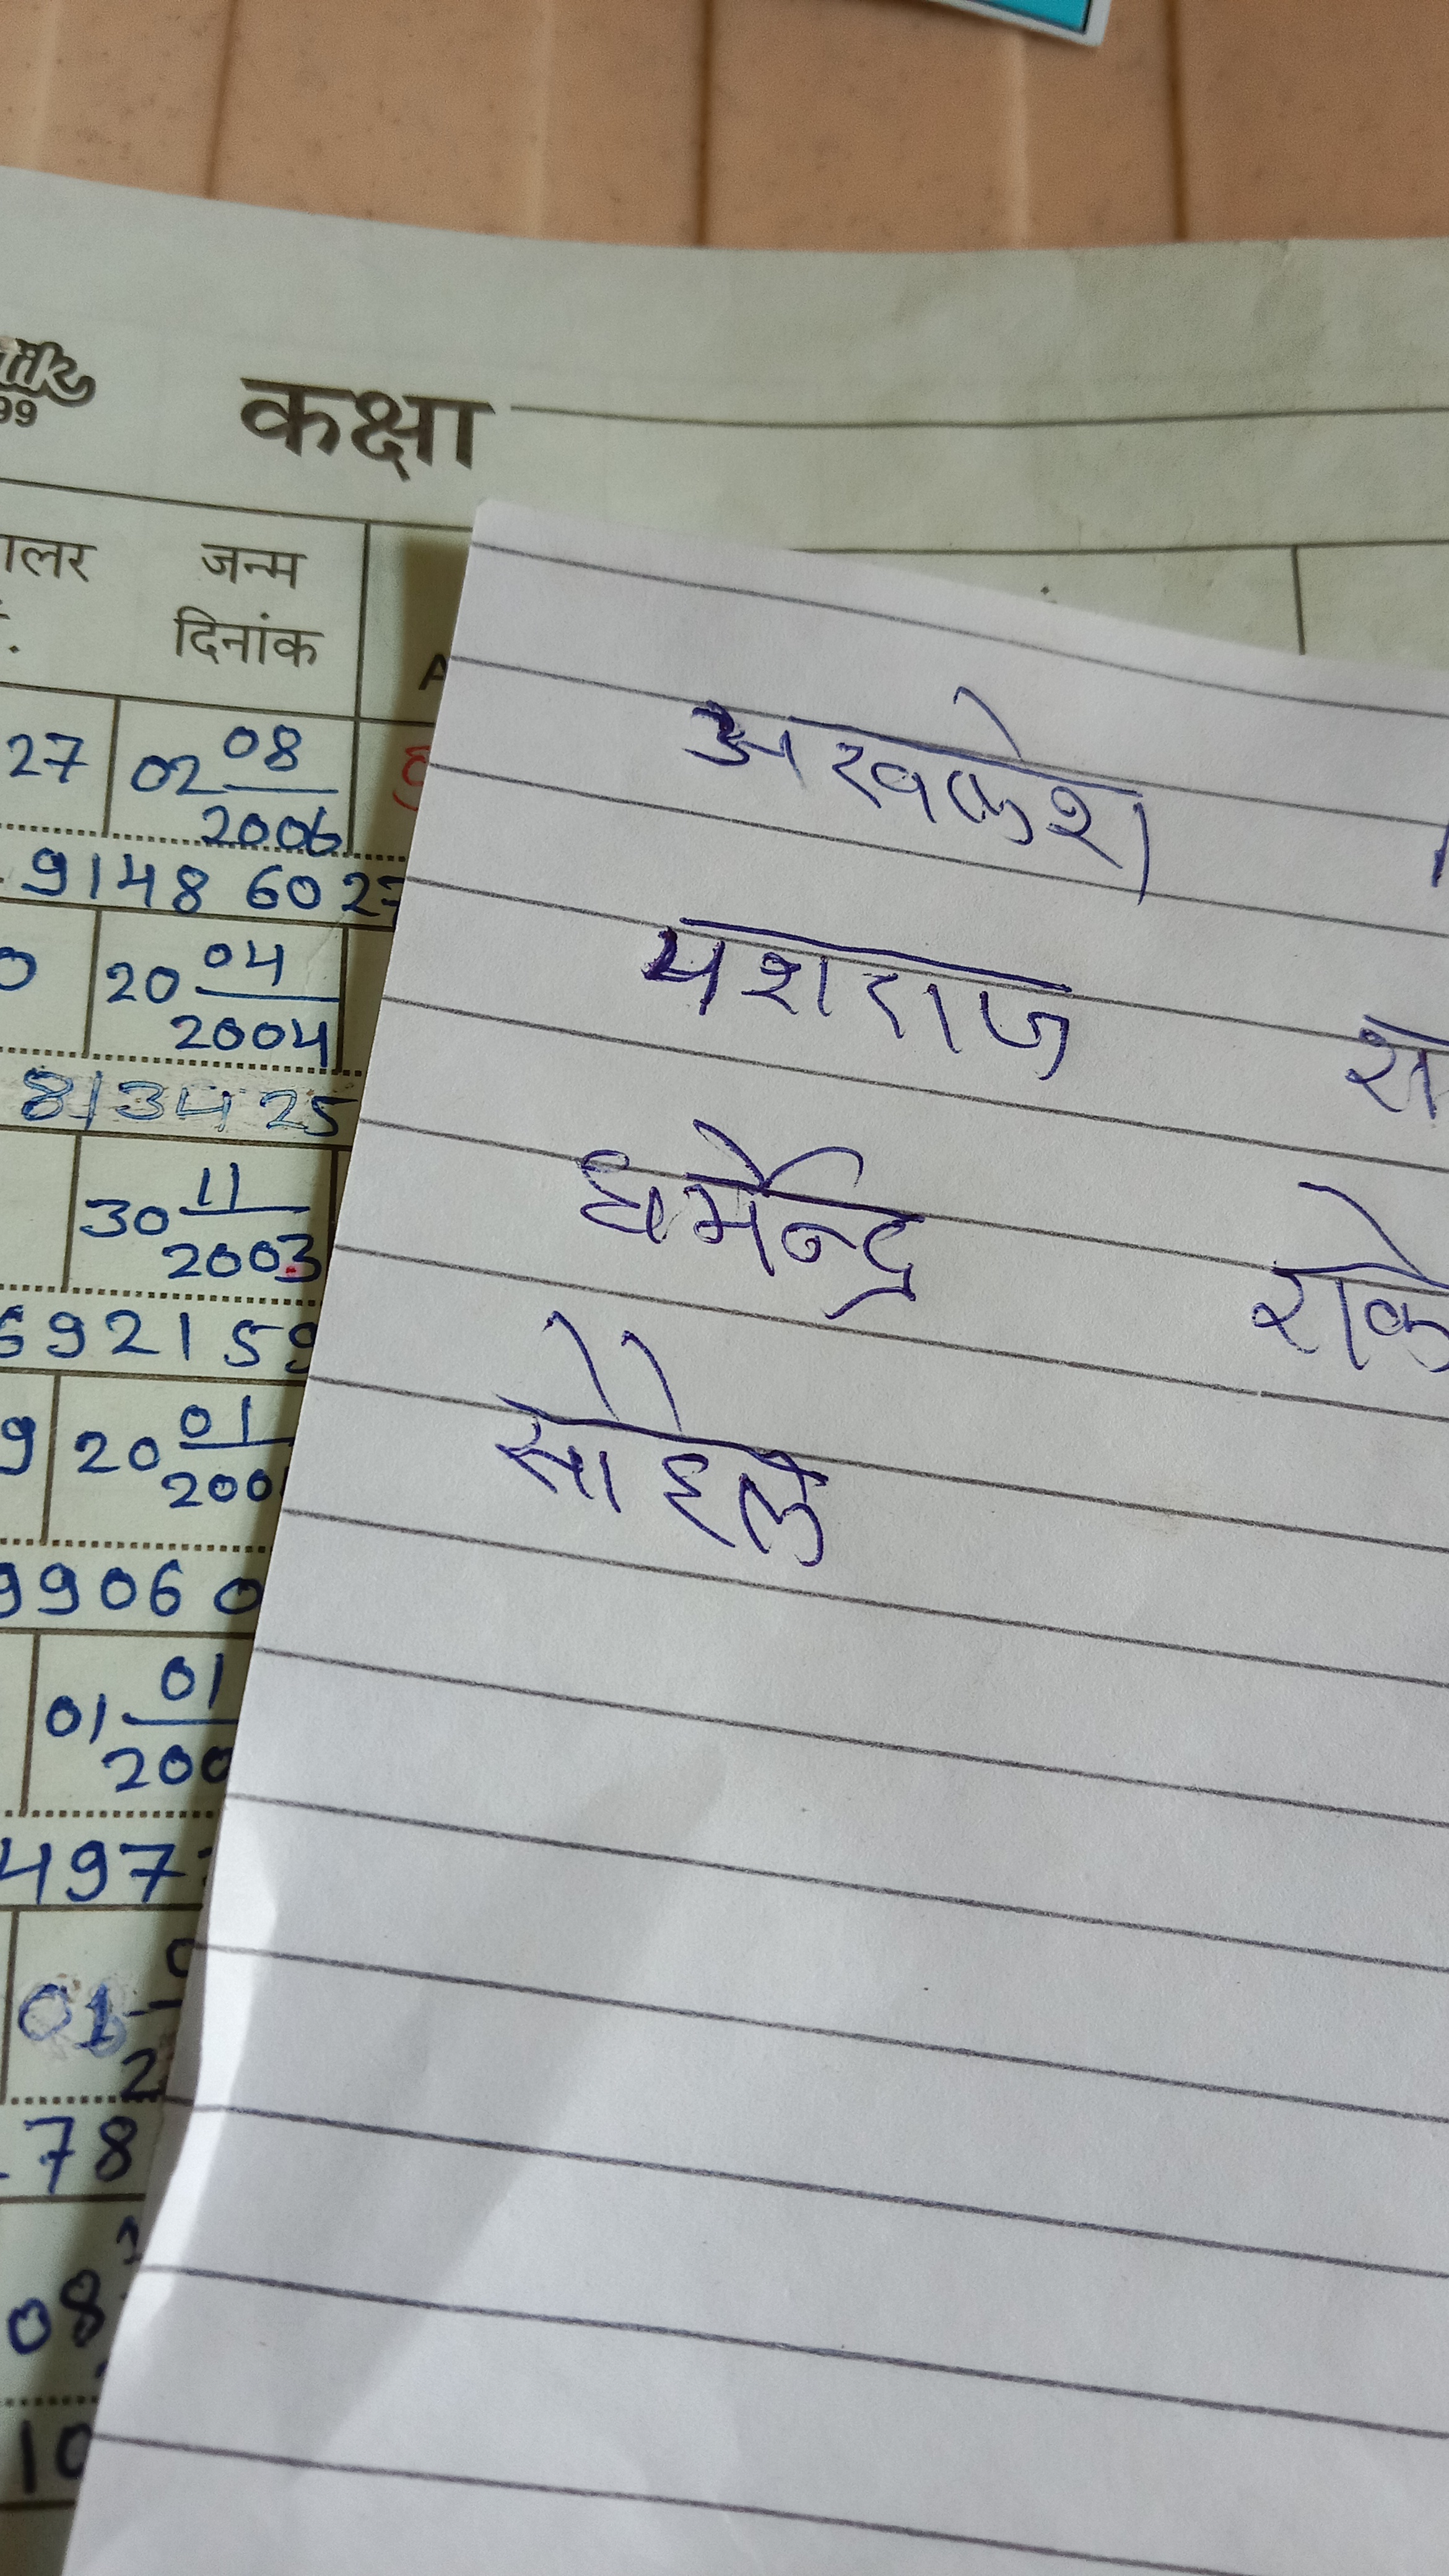 99 कक्षा
जन्म
दिनांक
27 02 08
2006
9148 6027
20 04
2004
813425
30 11
2003
692159
9 20 01
200
99060
01 01
200
497
01
2
78
08
10
अखकेश
यशराज
धर्मेन्द्र राके
सोहेल